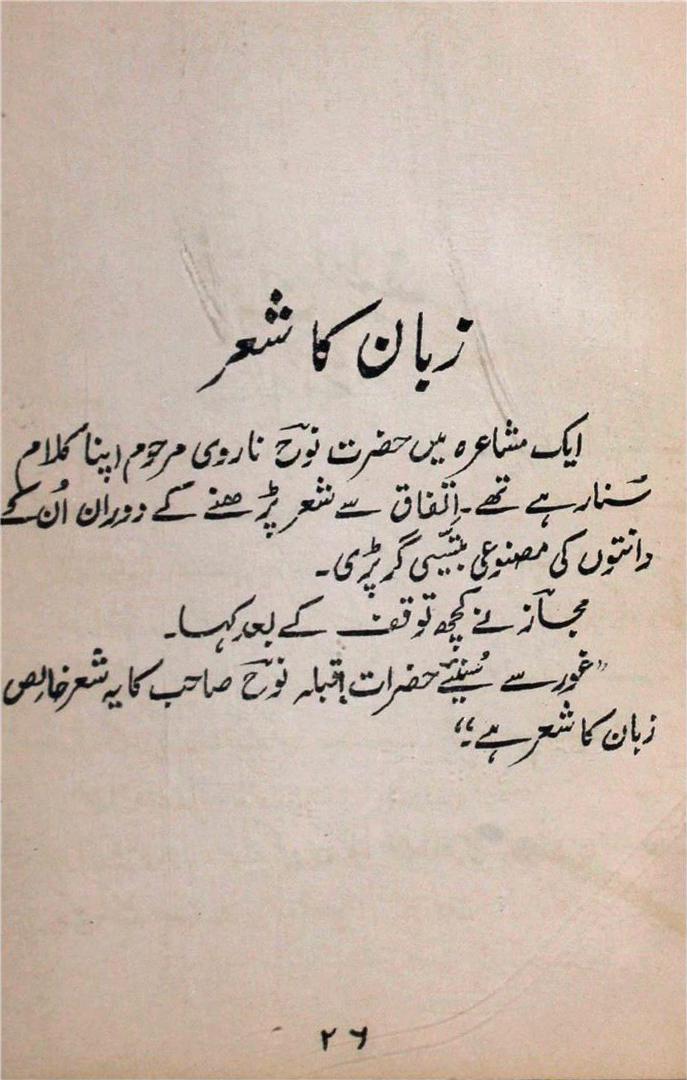 زبان کا شعر
ایک مشاعرہ میں حضرت نوحؔ ناروی مرحوم اپنا کلام
سُنا رہے تھے۔ اِتفاق سے شعر پڑھنے کے دوران اُن کے
دانتوں کی مصنوعی بتّیسی گر پڑی۔
مجازؔ نے کچھ توقف کے بعد کہا۔
”غور سے سُنیئے حضرات! قبلہ نوحؔ صاحب کا یہ شعر خالِص
زبان کا شعر ہے۔“
۲۶